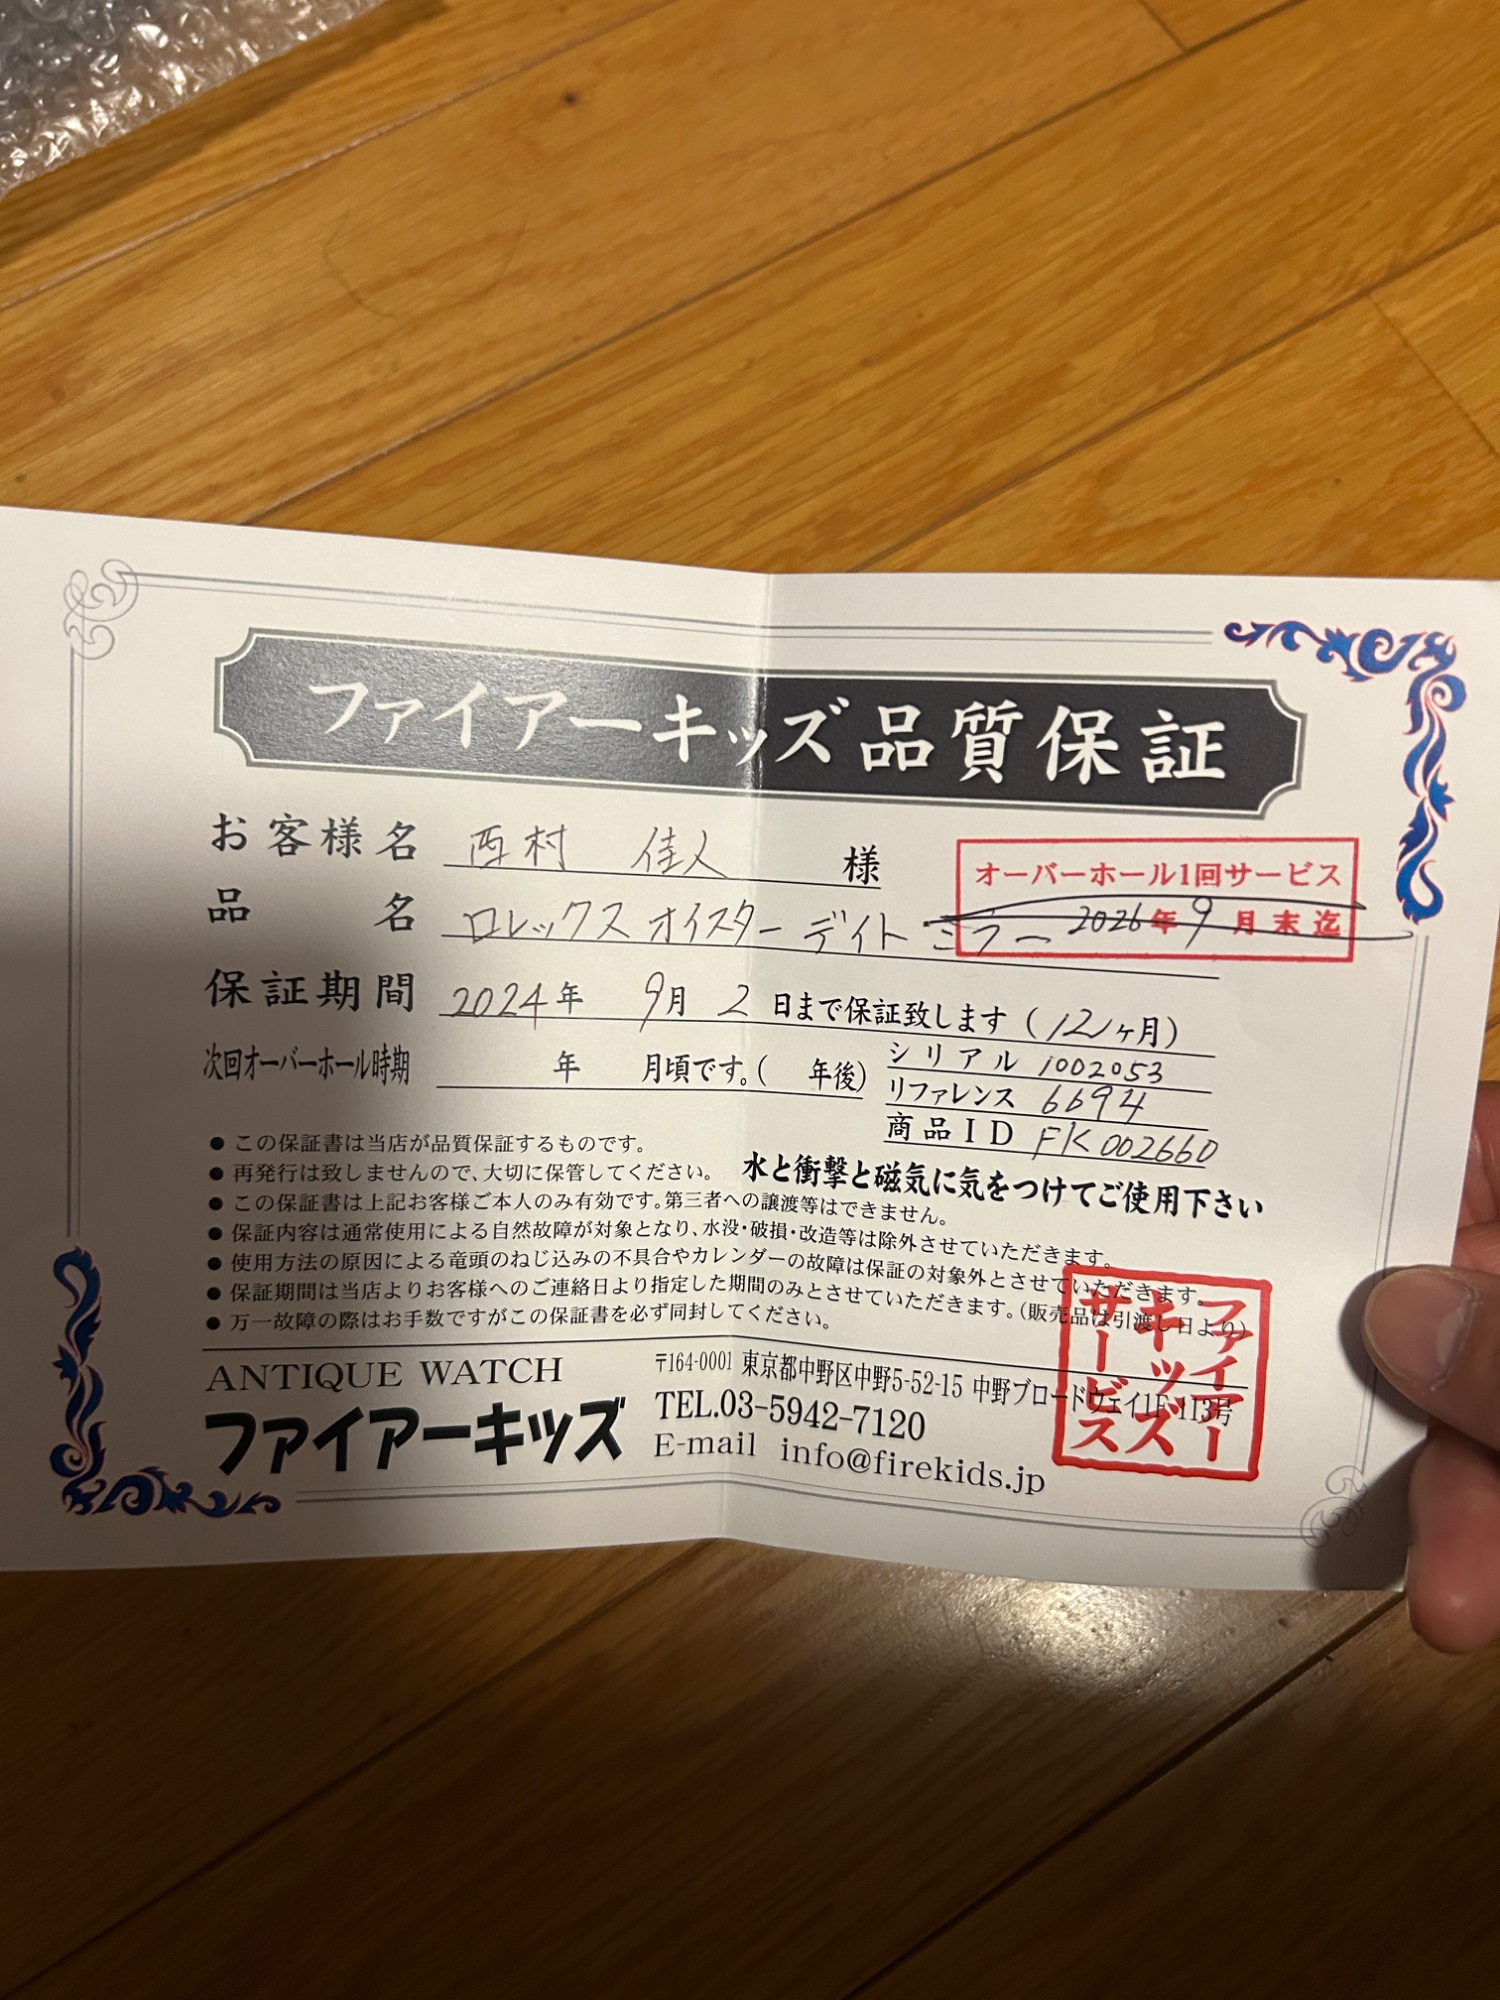 ファイアーキッズ品質保証
お客様名 西村 佳人 様
オーバーホール1回サービス
2026年9月末迄
品名 ロレックス オイスターデイト ミラー
保証期間 2024年 9月 2日まで保証致します(12ヶ月)
次回オーバーホール時期 年 月頃です。( 年後)
シリアル 1002053
リファレンス 6694
商品ID FK002660
●この保証書は当店が品質保証するものです。
●再発行は致しませんので、大切に保管してください。
水と衝撃と磁気に気をつけてご使用下さい
●この保証書は上記お客様ご本人のみ有効です。第三者への譲渡等はできません。
●保証内容は通常使用による自然故障が対象となり、水没・破損・改造等は除外させていただきます。
●使用方法の原因による竜頭のねじ込みの不具合やカレンダーの故障は保証の対象外とさせていただきます。
●保証期間は当店よりお客様へのご連絡日より指定した期間のみとさせていただきます。(販売品は引渡し日より)
●万一故障の際はお手数ですがこの保証書を必ず同封してください。
ANTIQUE WATCH
ファイアーキッズ
〒164-0001 東京都中野区中野5-52-15 中野ブロードウェイ1F 113号
TEL.03-5942-7120
E-mail info@firekids.jp
ファイアー
キッズ
サービス